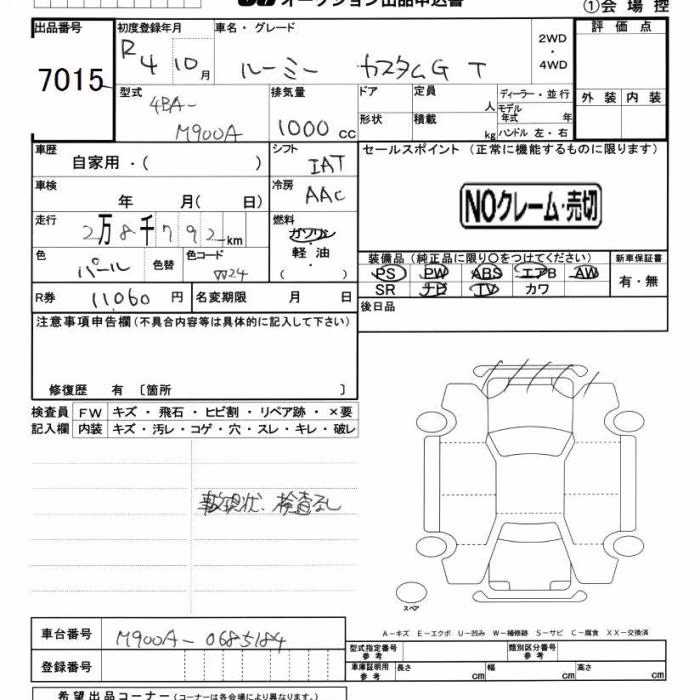 オークション出品申込書 ①会場控
出品番号 初度登録年月 車名・グレード 2WD・4WD 評価点
7015 R4 10月 ルーミー カスタムG T
型式 排気量 ドア 定員 人 ディーラー・並行 外装 内装
4BA-M900A 1000cc 形状 積載 kg モデル年式 年 ハンドル 左・右
車歴 シフト セールスポイント (正常に機能するものに限ります)
自家用・( ) IAT
車検 冷房 NOクレーム・売切
年 月( 日) AAC
走行 燃料
2万8千792km ガソリン
軽・油
( )
色 色替 色コード 装備品(純正品に限り○をつけてください) 新車保証書
パール W24 PS PW ABS エアB AW 有・無
SR ナビ TV カワ
R券 11,060円 名変期限 月 日 後日品
注意事項申告欄(不具合内容等は具体的に記入して下さい)
修復歴 有 〔箇所 〕
検査員 FW キズ・飛石・ヒビ割・リペア跡・×要
記入欄 内装 キズ・汚レ・コゲ・穴・スレ・キレ・破レ
事故現状、検査なし
スペア
A-キズ E-エクボ U-凹み W-補修跡 S-サビ C-腐食 XX-交換済
車台番号 M900A-0685184
型式指定番号 参考 類別区分番号 参考
登録番号 車庫証明用 参考 長さ cm 幅 cm 高さ cm
希望出品コーナー(コーナーは各会場により異なります。)